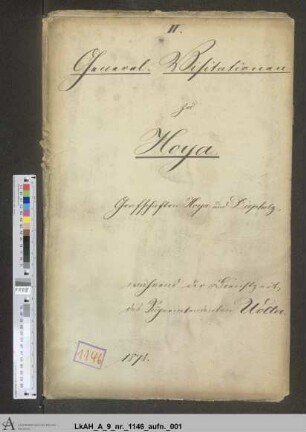 II.
General-Visitationen
zu
Hoya.
Grafschaften Hoya und Diepholz.
während der Dienstzeit
des
1146
1871.
LkAH_A_9_nr._1146_aufn._001